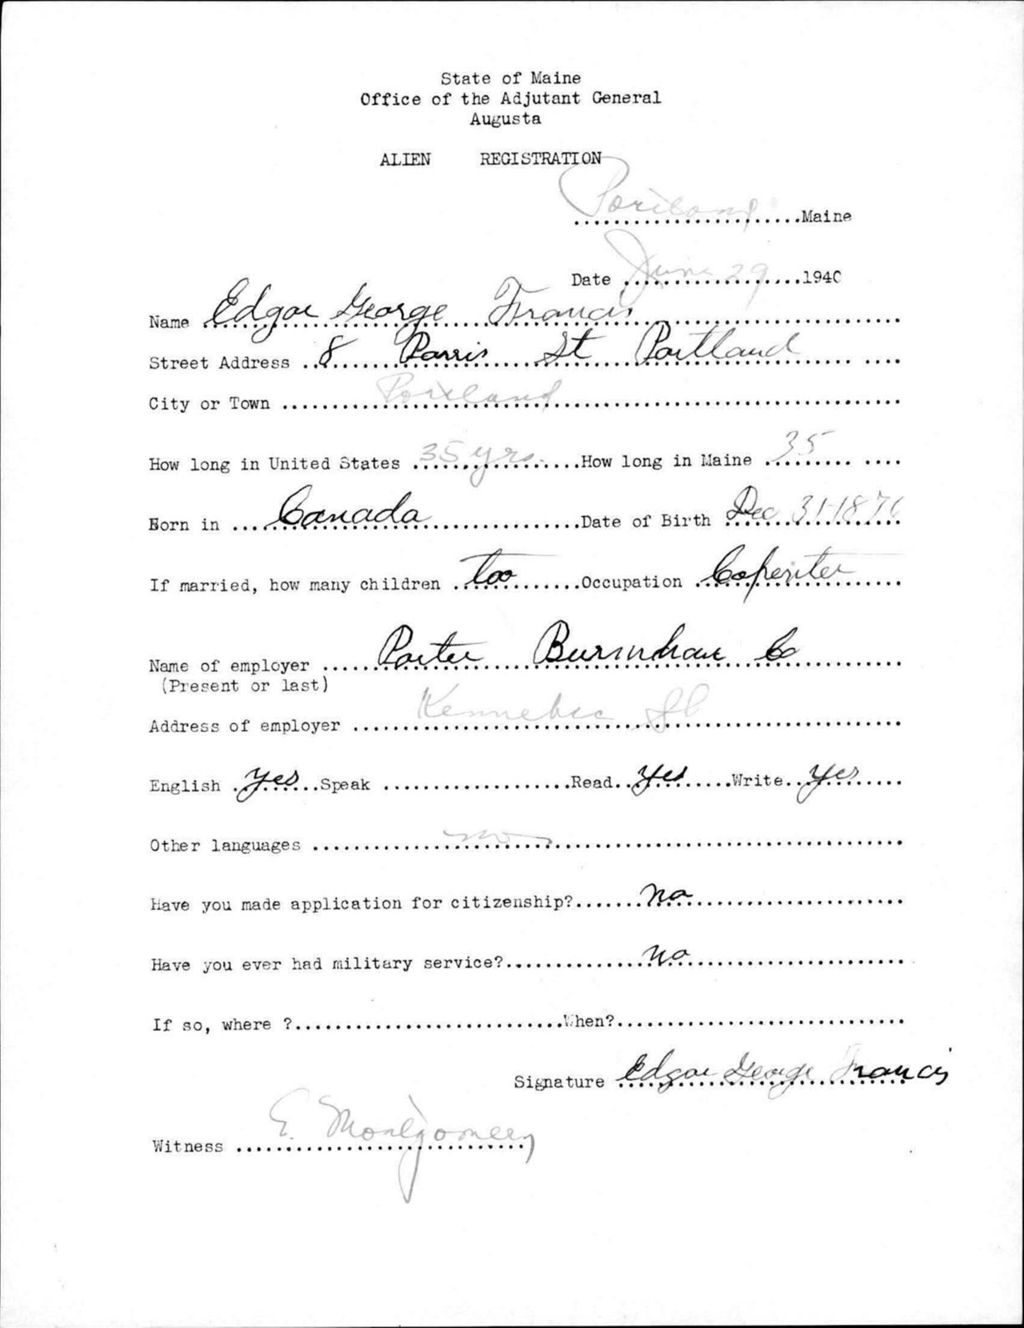 State of Maine
Office of the Adjutant General
Augusta
ALIEN REGISTRATION
Portland Maine
Date June 29 1940
Name Edgar George Francis
Street Address 8 Parris St Portland
City or Town Portland
How long in United States 35 yrs. How long in Maine 35
Born in Canada Date of Birth Dec 31-1876
If married, how many children too Occupation Coperiter
Name of employer Porter Burnham Co
(Present or last)
Address of employer Kennebec St
English Yes Speak Read Yes Write Yes
Other languages no
Have you made application for citizenship? No
Have you ever had military service? No
If so, where ? When?
Signature Edgar George Francis
Witness E. Montgomery